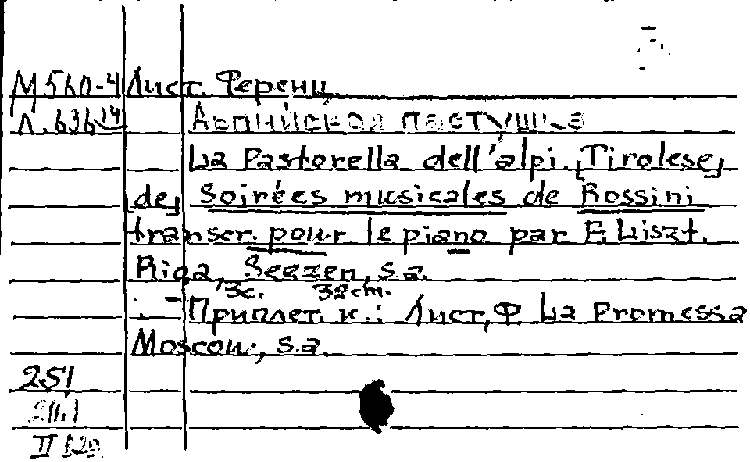 М560-4 Лист Ференц
Л.636 Альпийская пастушка
La Pastorella dell'alpi. [Tirolese]
[de] Soirées musicales de Rossini
transcr. pour le piano par F. Liszt.
Riga, Seezen, s.a.
3с. 32cm.
- Приплет. к.: Лист, Ф La Promessa
Moscou, s.a.
251
II